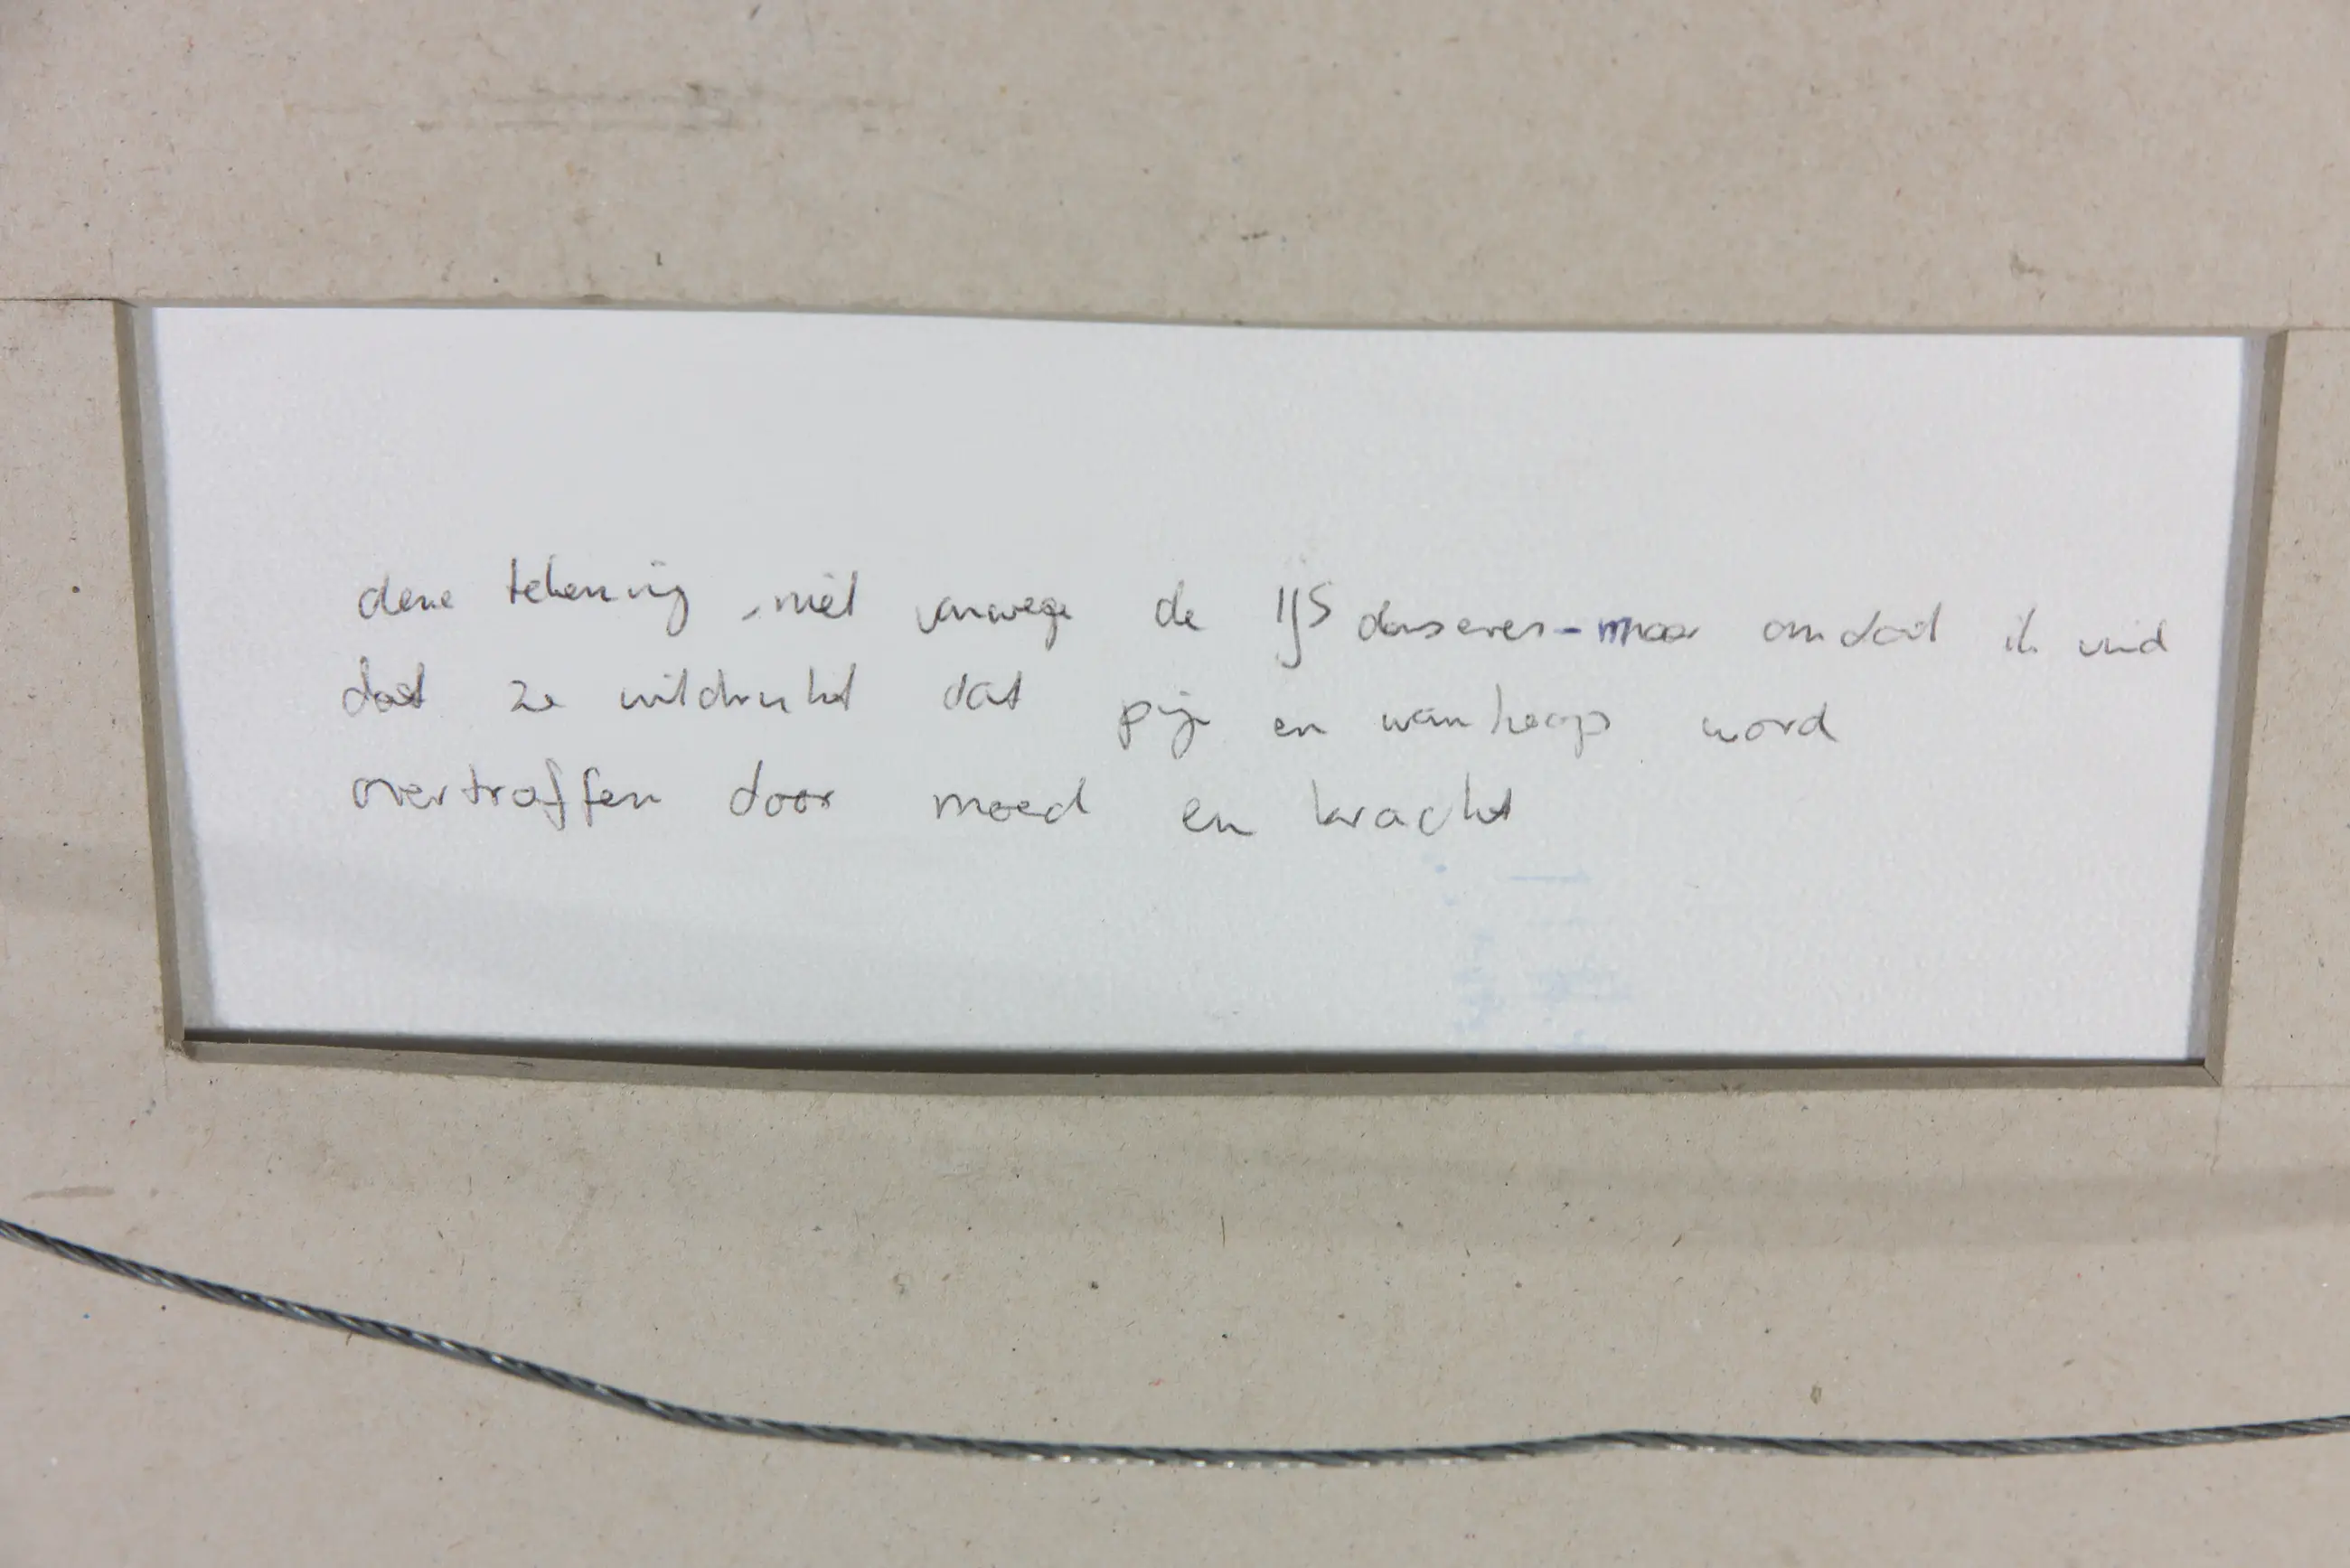 deze tekening, niet vanwege de IJS danseres - maar omdat ik vind
dat ze uitdrukt dat pijn en wanhoop word
overtroffen door moed en kracht